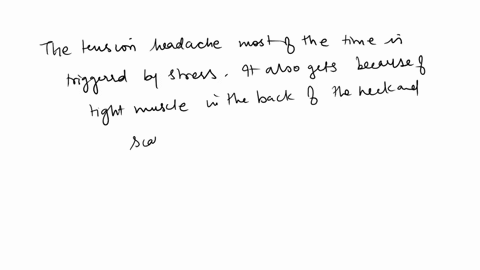 The tension headache most of the time is
triggered by stress. It also gets because of
tight muscle in the back of the neck and
sca